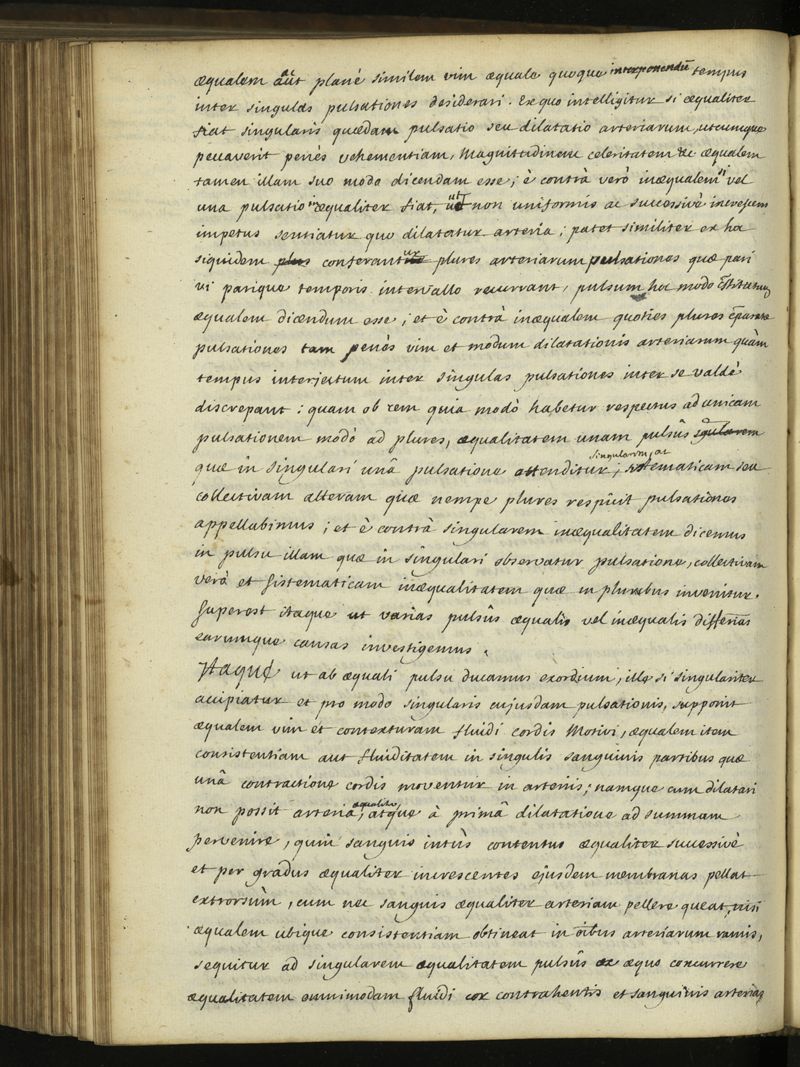 æqualem aut planè similem vim æquale quoque interponendū tempus
inter singulas pulsationes desiderari. Ex quo intelligitur si æqualiter
fiat singularis quædam pulsatio seu dilatatio arteriarum, utcumque
peccaverit penès vehementiam, Magnitudinem celeritatem &c æqualem
tamen illam suo modo dicendam esse; è contrà verò inæqualem si vel
una pulsatio inæqualiter fiat, ut non uniformis ac successivè increscens
impetus sentiatur quo dilatatur arteria; patet similiter ex hac
siquidem conferantur plures arteriarum pulsationes quæ pari
vi parique temporis intervallo recurrant, pulsum hoc modo
æqualem dicendum esse; et è contrà inæqualem quoties plures
pulsationes tam penès vim et modum dilatationis arteriarum quàm
tempus interjectum inter singulas pulsationes inter se valdè
discrepant: quam ob rem quia modò habetur respectus ad unicam
pulsationem modò ad plures, æqualitatem unam pulsûs singularem
quæ in singulari unâ pulsatione attenditur; sistematicam seu
collectivam alteram quæ nempe plures respicit pulsationes
appellabimus; et è contrà singularem inæqualitatem dicemus
in pulsu illam quæ in singulari observatur pulsatione, collectivam
verò et sistematicam inæqualitatem quæ in pluribus invenitur.
Superest itaque ut varias pulsûs æqualis vel inæqualis differīas
earumque causas investigemus.
Itaque ut ab æquali pulsu ducamus exordium, ille si singulariter
accipiatur et pro modo singularis cujusdam pulsationis, supponit
æqualem vim et contexturam fluidi cordis Motivi, æqualem item
consistentiam aut fluiditatem in singulis sanguinis partibus quæ
unâ contractione cordis moventur in arteriis; namque cum dilatari
non possit arteria æqualiter, atque à primâ dilatatione ad summam
pervenire, quin sanguis intùs contentus æqualiter successivè
et per gradus æqualiter increscentes ejusdem membranas pellat
extrorsùm, cum nec sanguis æqualiter arteriam pellere queat, nisi
æqualem ubique consistentiam obtineat in oībus arteriarum ramis,
sequitur ad singularem æqualitatem pulsûs ex æquo concurrere
æqualitatem omnimodam fluidi cor contrahentis et sanguinis arterias